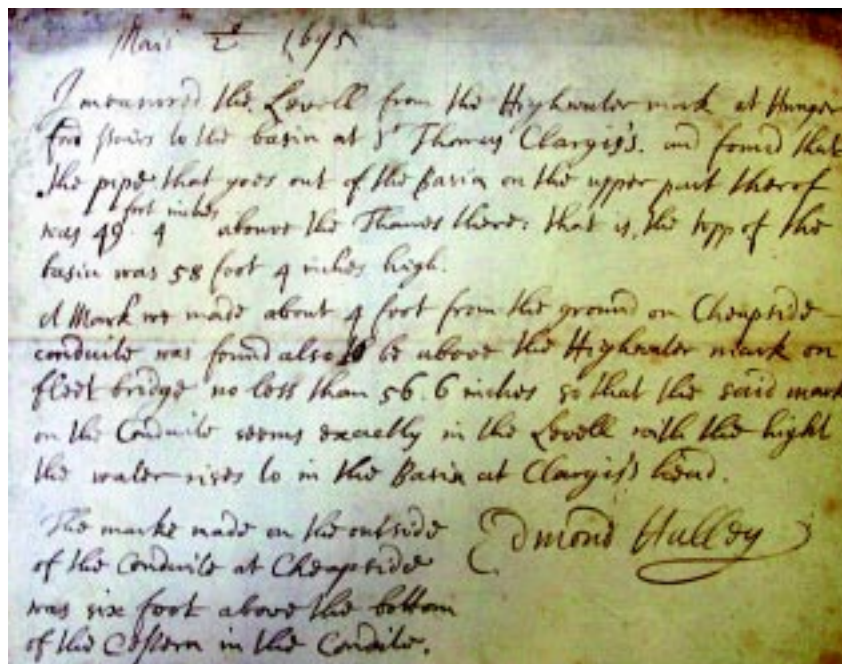 Maii 2d 1695
I measured the Levell from the Highwater mark at Hunger
ford stairs to the basin at Sr Thomas Clargis's. and found that
the pipe that goes out of the Basin on the upper part therof
was 49 foot 4 inches above the Thames there: that is, the topp of the
basin was 58 foot 4 inches high.
A Mark we made about 4 foot from the ground on Cheapside
conduite was found also to be above the Highwater mark on
fleet bridge no less than 56. 6 inches so that the said mark
on the Conduite seems exactly in the Levell with the hight
the water rises to in the Basin at Clargis's head.
The marke made on the outside
of the Conduite at Cheapside
was six foot above the bottom
of the Cestern in the Conduite.
Edmond Halley